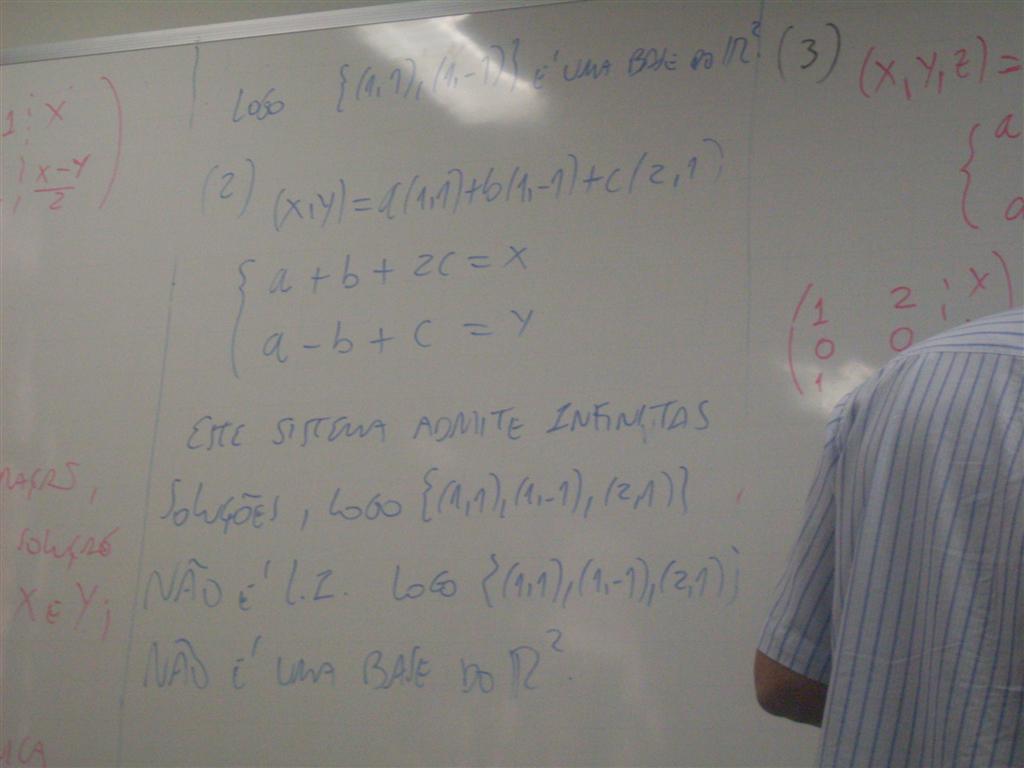 1 ⋮ X
⋮ X-Y/2
NAÇÃO,
SOLUÇÃO
X E Y;
LOGO {(1,1),(1,-1)} É UMA BASE DO ℝ²
(2) (X,Y)=a(1,1)+b(1,-1)+c(2,1)
a + b + 2c = X
a - b + c = Y
ESTE SISTEMA ADMITE INFINITAS
SOLUÇÕES, LOGO {(1,1),(1,-1),(2,1)}
NÃO É L.I. LOGO {(1,1),(1,-1),(2,1)}
NÃO É UMA BASE DO ℝ².
(3) (X,Y,Z) =
a
a
1 2 ⋮ X
0 0
1